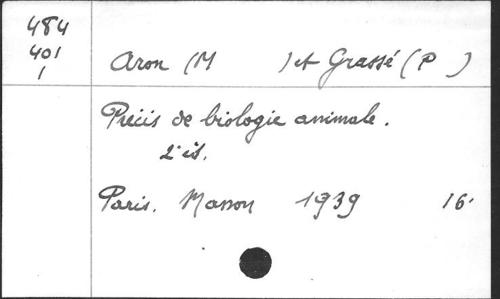 484
401
1
Aron (M ) et Grassé (P )
Précis de biologie animale.
2e éd.
Paris. Masson 1939 16°